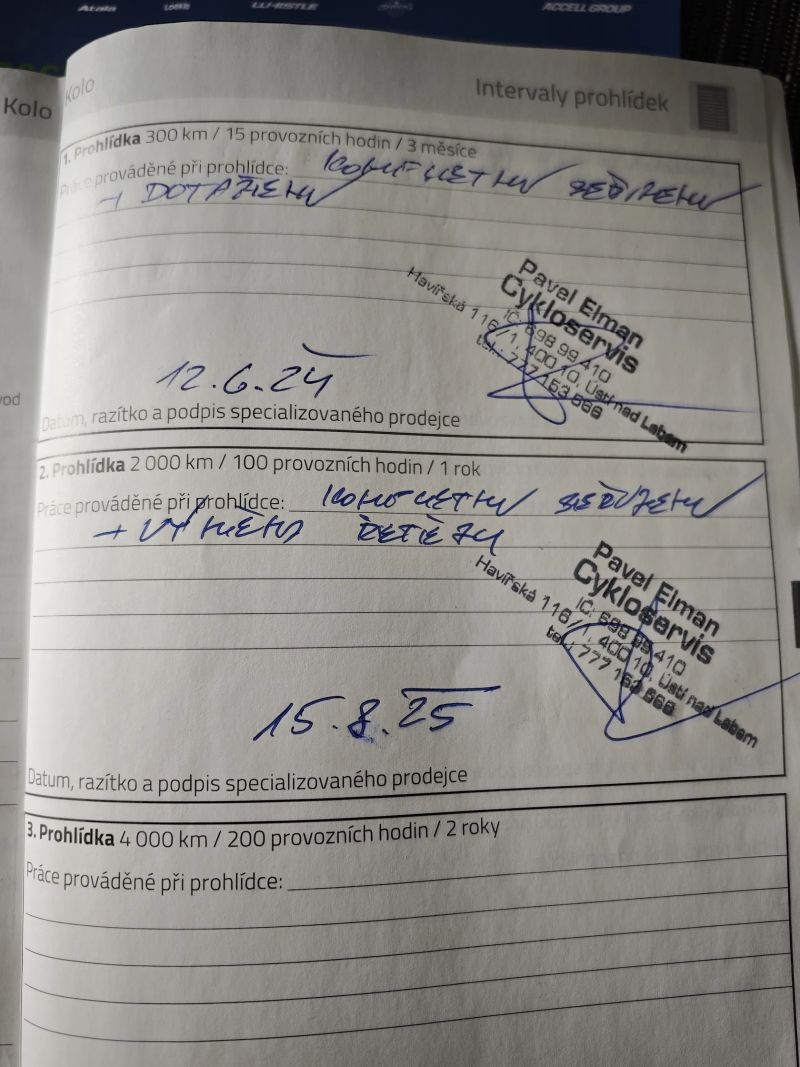 Atala
WHISTLE
ACCELL GROUP
Kolo
Kolo
Intervaly prohlídek
1. Prohlídka 300 km / 15 provozních hodin / 3 měsíce
Práce prováděné při prohlídce: KOMPLETNÍ SEŘÍZENÍ
+ DOTAŽENÍ
Pavel Elman
Cykloservis
IČ: 698 99 410
Havířská 116/1, 400 10, Ústí nad Labem
tel.: 777 163 666
12.6.24
Datum, razítko a podpis specializovaného prodejce
vod
2. Prohlídka 2 000 km / 100 provozních hodin / 1 rok
Práce prováděné při prohlídce: KOMPLETNÍ SEŘÍZENÍ
+ VÝMĚNA ŘETĚZU
Pavel Elman
Cykloservis
IČ: 698 99 410
Havířská 116/1, 400 10, Ústí nad Labem
tel.: 777 163 666
15.8.25
Datum, razítko a podpis specializovaného prodejce
3. Prohlídka 4 000 km / 200 provozních hodin / 2 roky
Práce prováděné při prohlídce: